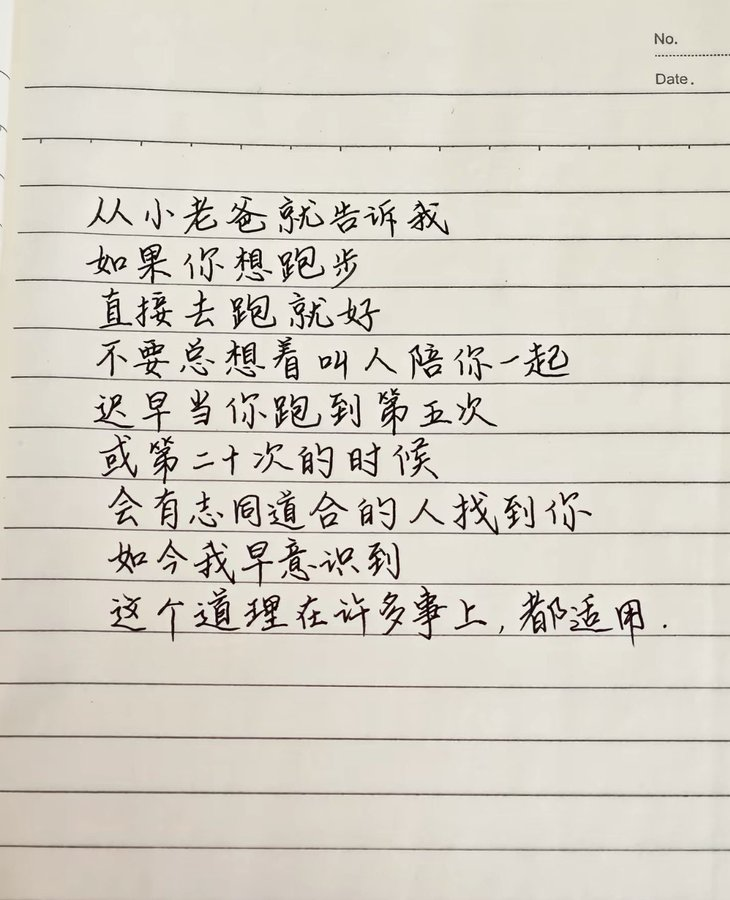 No.
Date.
从小老爸就告诉我
如果你想跑步
直接去跑就好
不要总想着叫人陪你一起
迟早当你跑到第五次
或第二十次的时候
会有志同道合的人找到你
如今我早意识到
这个道理在许多事上,都适用.